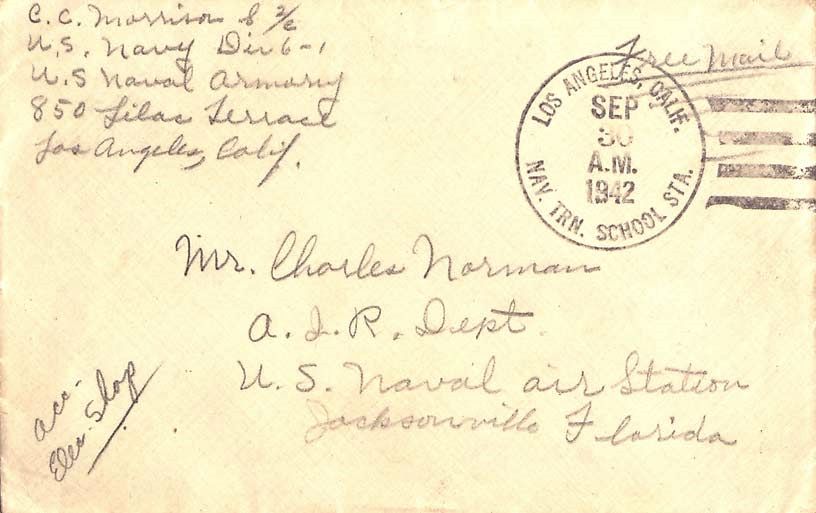 C. C. Morrison S 2/c
U.S. Navy Div 6-1
U.S Naval Armory
850 Lilac Terrace
Los Angeles, Calif.
Free Mail
LOS ANGELES, CALIF.
SEP
30
A.M.
1942
NAV. TRN. SCHOOL STA.
Mr. Charles Norman
A. & R. Dept.
U. S. Naval Air Station
Jacksonville Florida
acc.
Elec. Shop